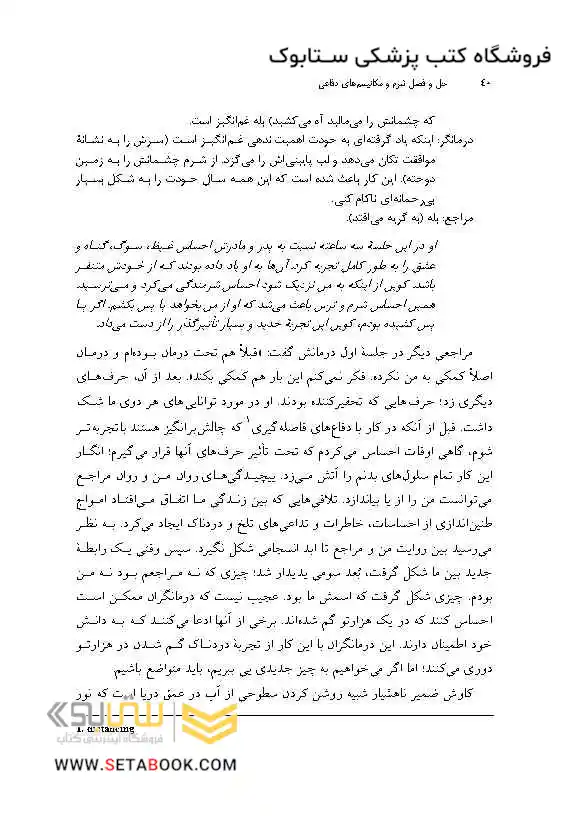 فروشگاه کتب پزشکی ستابوک
۴۰ حل و فصل شرم و مکانیسم‌های دفاعی
که چشمانش را می‌مالید آه می‌کشید) بله غم‌انگیز است.
درمانگر: اینکه یاد گرفته‌ای به خودت اهمیت ندهی غم‌انگیز است (سرش را به نشانهٔ
موافقت تکان می‌دهد و لب پایینی‌اش را می‌گزد. از شرم چشمانش را به زمین
دوخته). این کار باعث شده است که این همه سال خودت را به شکل بسیار
بی‌رحمانه‌ای ناکام کنی.
مراجع: بله (به گریه می‌افتد).
او در این جلسهٔ سه ساعته نسبت به پدر و مادرش احساس غیظ، سوگ، گناه و
عشق را به طور کامل تجربه کرد. آن‌ها به او یاد داده بودند که از خودش متنفر
باشد. کوین از اینکه به من نزدیک شود احساس شرمندگی می‌کرد و می‌ترسید.
همین احساس شرم و ترس باعث می‌شد که او از من بخواهد پا پس بکشم. اگر پا
پس کشیده بودم، کوین این تجربهٔ جدید و بسیار تأثیرگذار را از دست می‌داد.
مراجعی دیگر در جلسهٔ اول درمانش گفت: «قبلاً هم تحت درمان بوده‌ام و درمان
اصلاً کمکی به من نکرده. فکر نمی‌کنم این بار هم کمکی بکند». بعد از آن، حرف‌های
دیگری زد؛ حرف‌هایی که تحقیرکننده بودند. او در مورد توانایی‌های هر دوی ما شک
داشت. قبل از آنکه در کار با دفاع‌های فاصله‌گیری۱ که چالش‌برانگیز هستند باتجربه‌تر
شوم، گاهی اوقات احساس می‌کردم که تحت تأثیر حرف‌های آنها قرار می‌گیرم؛ انگار
این کار تمام سلول‌های بدنم را آتش می‌زد. پیچیدگی‌های روان من و روان مراجع
می‌توانست من را از پا بیاندازد. تلاقی‌هایی که بین زندگی ما اتفاق می‌افتاد امواج
طنین‌اندازی از احساسات، خاطرات و تداعی‌های تلخ و دردناک ایجاد می‌کرد. به نظر
می‌رسید بین روایت من و مراجع تا ابد انسجامی شکل نگیرد. سپس وقتی یک رابطهٔ
جدید بین ما شکل گرفت، بُعد سومی پدیدار شد؛ چیزی که نه مراجعم بود نه من
بودم. چیزی شکل گرفت که اسمش ما بود. عجیب نیست که درمانگران ممکن است
احساس کنند که در یک هزارتو گم شده‌اند. برخی از آنها ادعا می‌کنند که به دانش
خود اطمینان دارند. این درمانگران با این کار از تجربهٔ دردناک گم شدن در هزارتو
دوری می‌کنند؛ اما اگر می‌خواهیم به چیز جدیدی پی ببریم، باید متواضع باشیم.
کاوش ضمیر ناهشیار شبیه روشن کردن سطوحی از آب در عمق دریا است که نور
1. distancing
ستابوک
فروشگاه اینترنتی کتاب
WWW.SETABOOK.COM